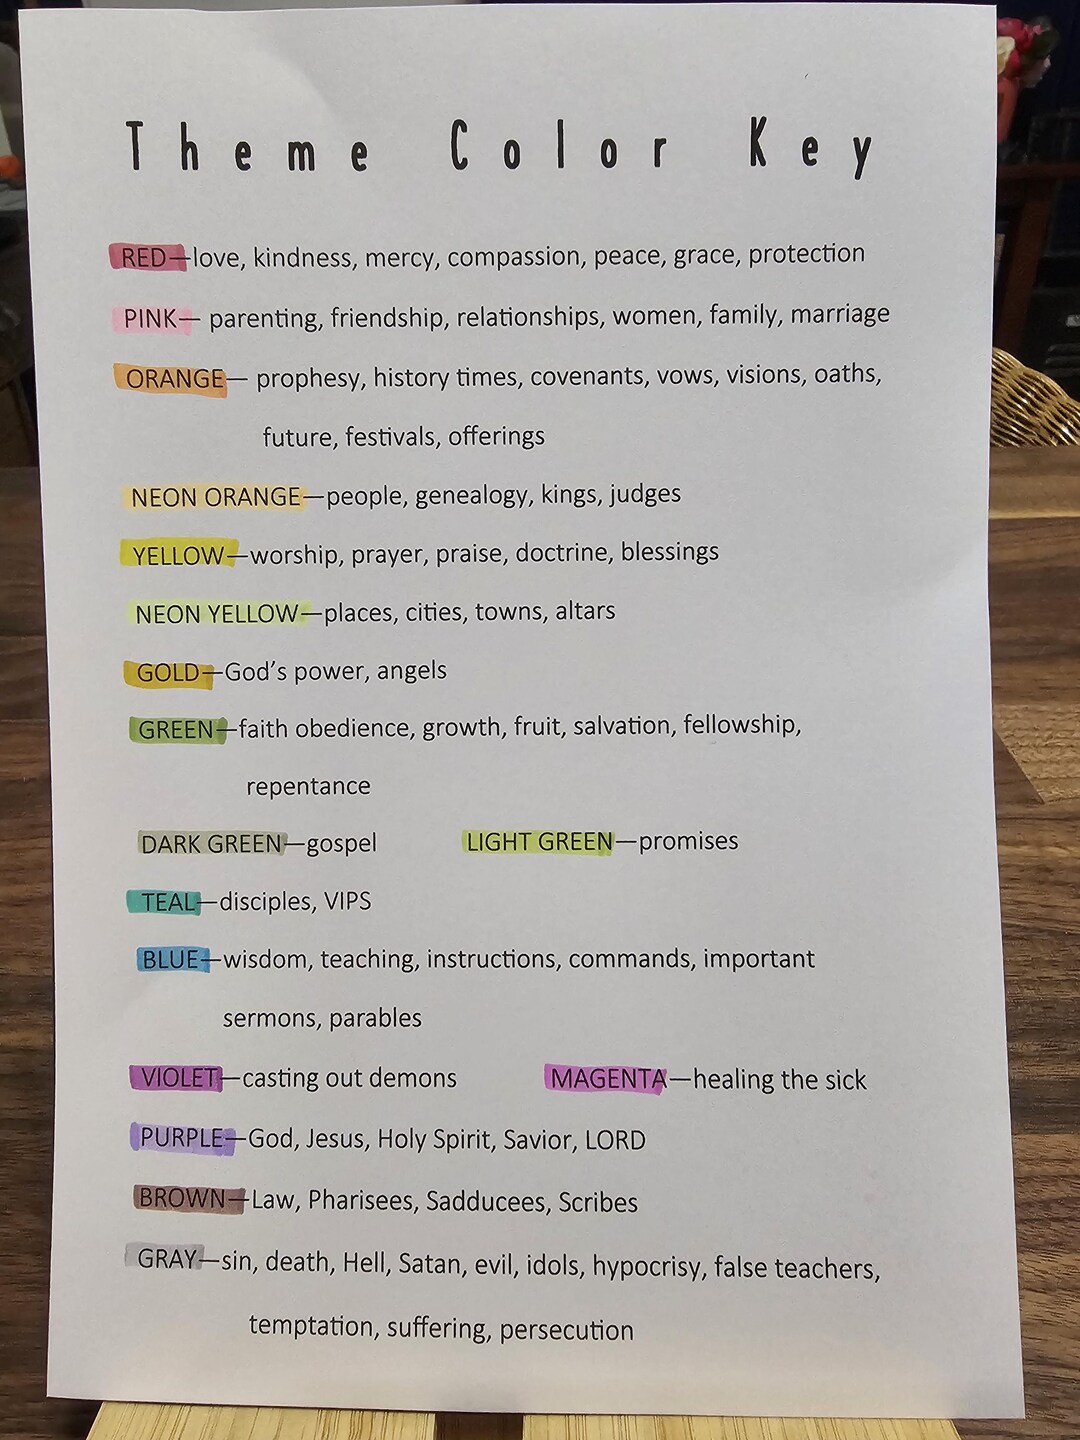 Theme Color Key
RED—love, kindness, mercy, compassion, peace, grace, protection
PINK— parenting, friendship, relationships, women, family, marriage
ORANGE— prophesy, history times, covenants, vows, visions, oaths,
future, festivals, offerings
NEON ORANGE—people, genealogy, kings, judges
YELLOW—worship, prayer, praise, doctrine, blessings
NEON YELLOW—places, cities, towns, altars
GOLD—God's power, angels
GREEN—faith obedience, growth, fruit, salvation, fellowship,
repentance
DARK GREEN—gospel LIGHT GREEN—promises
TEAL—disciples, VIPS
BLUE—wisdom, teaching, instructions, commands, important
sermons, parables
VIOLET—casting out demons MAGENTA—healing the sick
PURPLE—God, Jesus, Holy Spirit, Savior, LORD
BROWN—Law, Pharisees, Sadducees, Scribes
GRAY—sin, death, Hell, Satan, evil, idols, hypocrisy, false teachers,
temptation, suffering, persecution